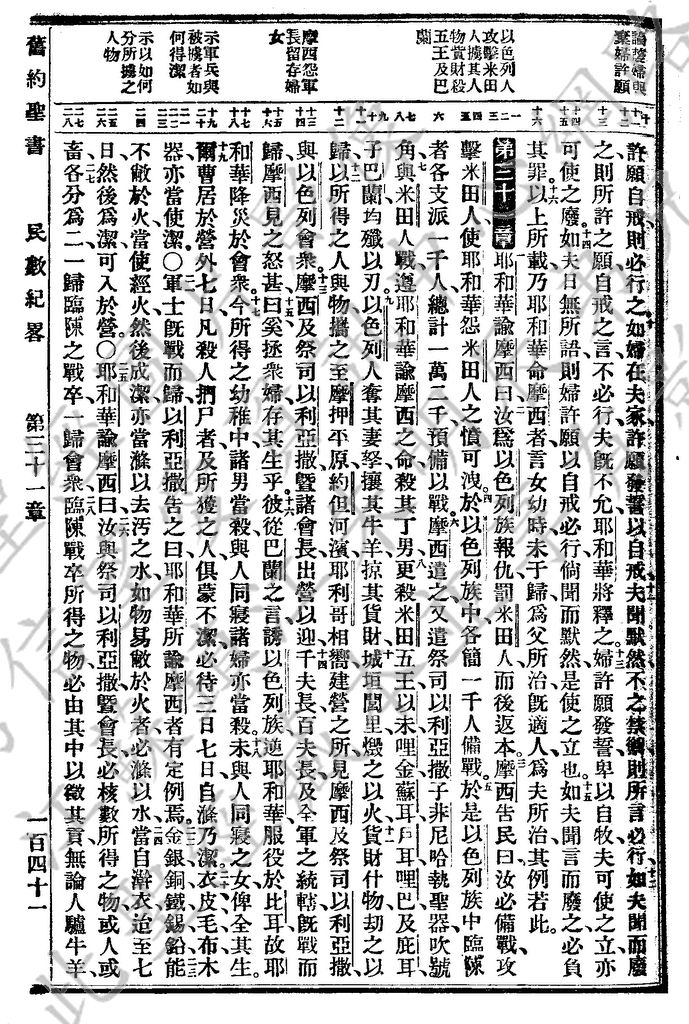 論嫠婦與
棄婦許願
以色列人
攻擊米田
人擄其人
物貨財殺
五王及巴
蘭
摩西怨軍
長留存婦
女
示軍兵與
被擄者如
何得潔
示以如何
分所擄之
人物
許願自戒則必行之如婦在夫家許願發誓以自戒夫聞默然不之禁綱則所言必行如夫聞而廢
之則所許之願自戒之言不必行夫旣不允耶和華將釋之婦許願發誓卑以自牧夫可使之立亦
可使之廢如夫日無所語則婦許願以自戒必行倘聞而默然是使之立也如夫聞言而廢之必負
其罪以上所載乃耶和華命摩西者言女幼時未于歸爲父所治旣適人爲夫所治其例若此
第三十一章 耶和華諭摩西曰汝爲以色列族報仇罰米田人而後返本摩西告民曰汝必備戰攻
擊米田人使耶和華怨米田人之憤可洩於以色列族中各簡一千人備戰於是以色列族中臨陳
者各支派一千人總計一萬二千預備以戰摩西遣之又遣祭司以利亞撒子非尼哈執聖器吹號
角與米田人戰遵耶和華諭摩西之命殺其丁男更殺米田五王以未哩金蘇耳戶耳哩巴及庇耳
子巴蘭均殲以刃以色列人奪其妻孥攘其牛羊掠其貨財城垣閭里燬之以火貨財什物劫之以
歸以所得之人與物攜之至摩押平原約但河濱耶利哥相嚮建營之所見摩西及祭司以利亞撒
與以色列會衆摩西及祭司以利亞撒曁諸會長出營以迎千夫長百夫長及全軍之統轄旣戰而
歸摩西見之怒甚曰奚拯衆婦存其生乎彼從巴蘭之言誘以色列族逆耶和華服役於比耳故耶
和華降災於會衆今所得之幼稚中諸男當殺與人同寢諸婦亦當殺未與人同寢之女俾全其生
爾曹居於營外七日凡殺人捫尸者及所獲之人俱蒙不潔必待三日七日自滌乃潔衣皮毛布木
器亦當使潔○軍士旣戰而歸以利亞撒吿之曰耶和華所諭摩西者有定例焉金銀銅鐵錫鉛能
不敝於火當使經火然後成潔亦當滌以去汚之水如物易敝於火者必滌以水當自澣衣迨至七
日然後爲潔可入於營○耶和華諭摩西曰汝與祭司以利亞撒曁會長必核數所得之物或人或
畜各分爲二一歸臨陳之戰卒一歸會衆臨陳戰卒所得之物必由其中以徵其貢無論人驢牛羊
舊約聖書 民數紀畧 第三十一章 一百四十一